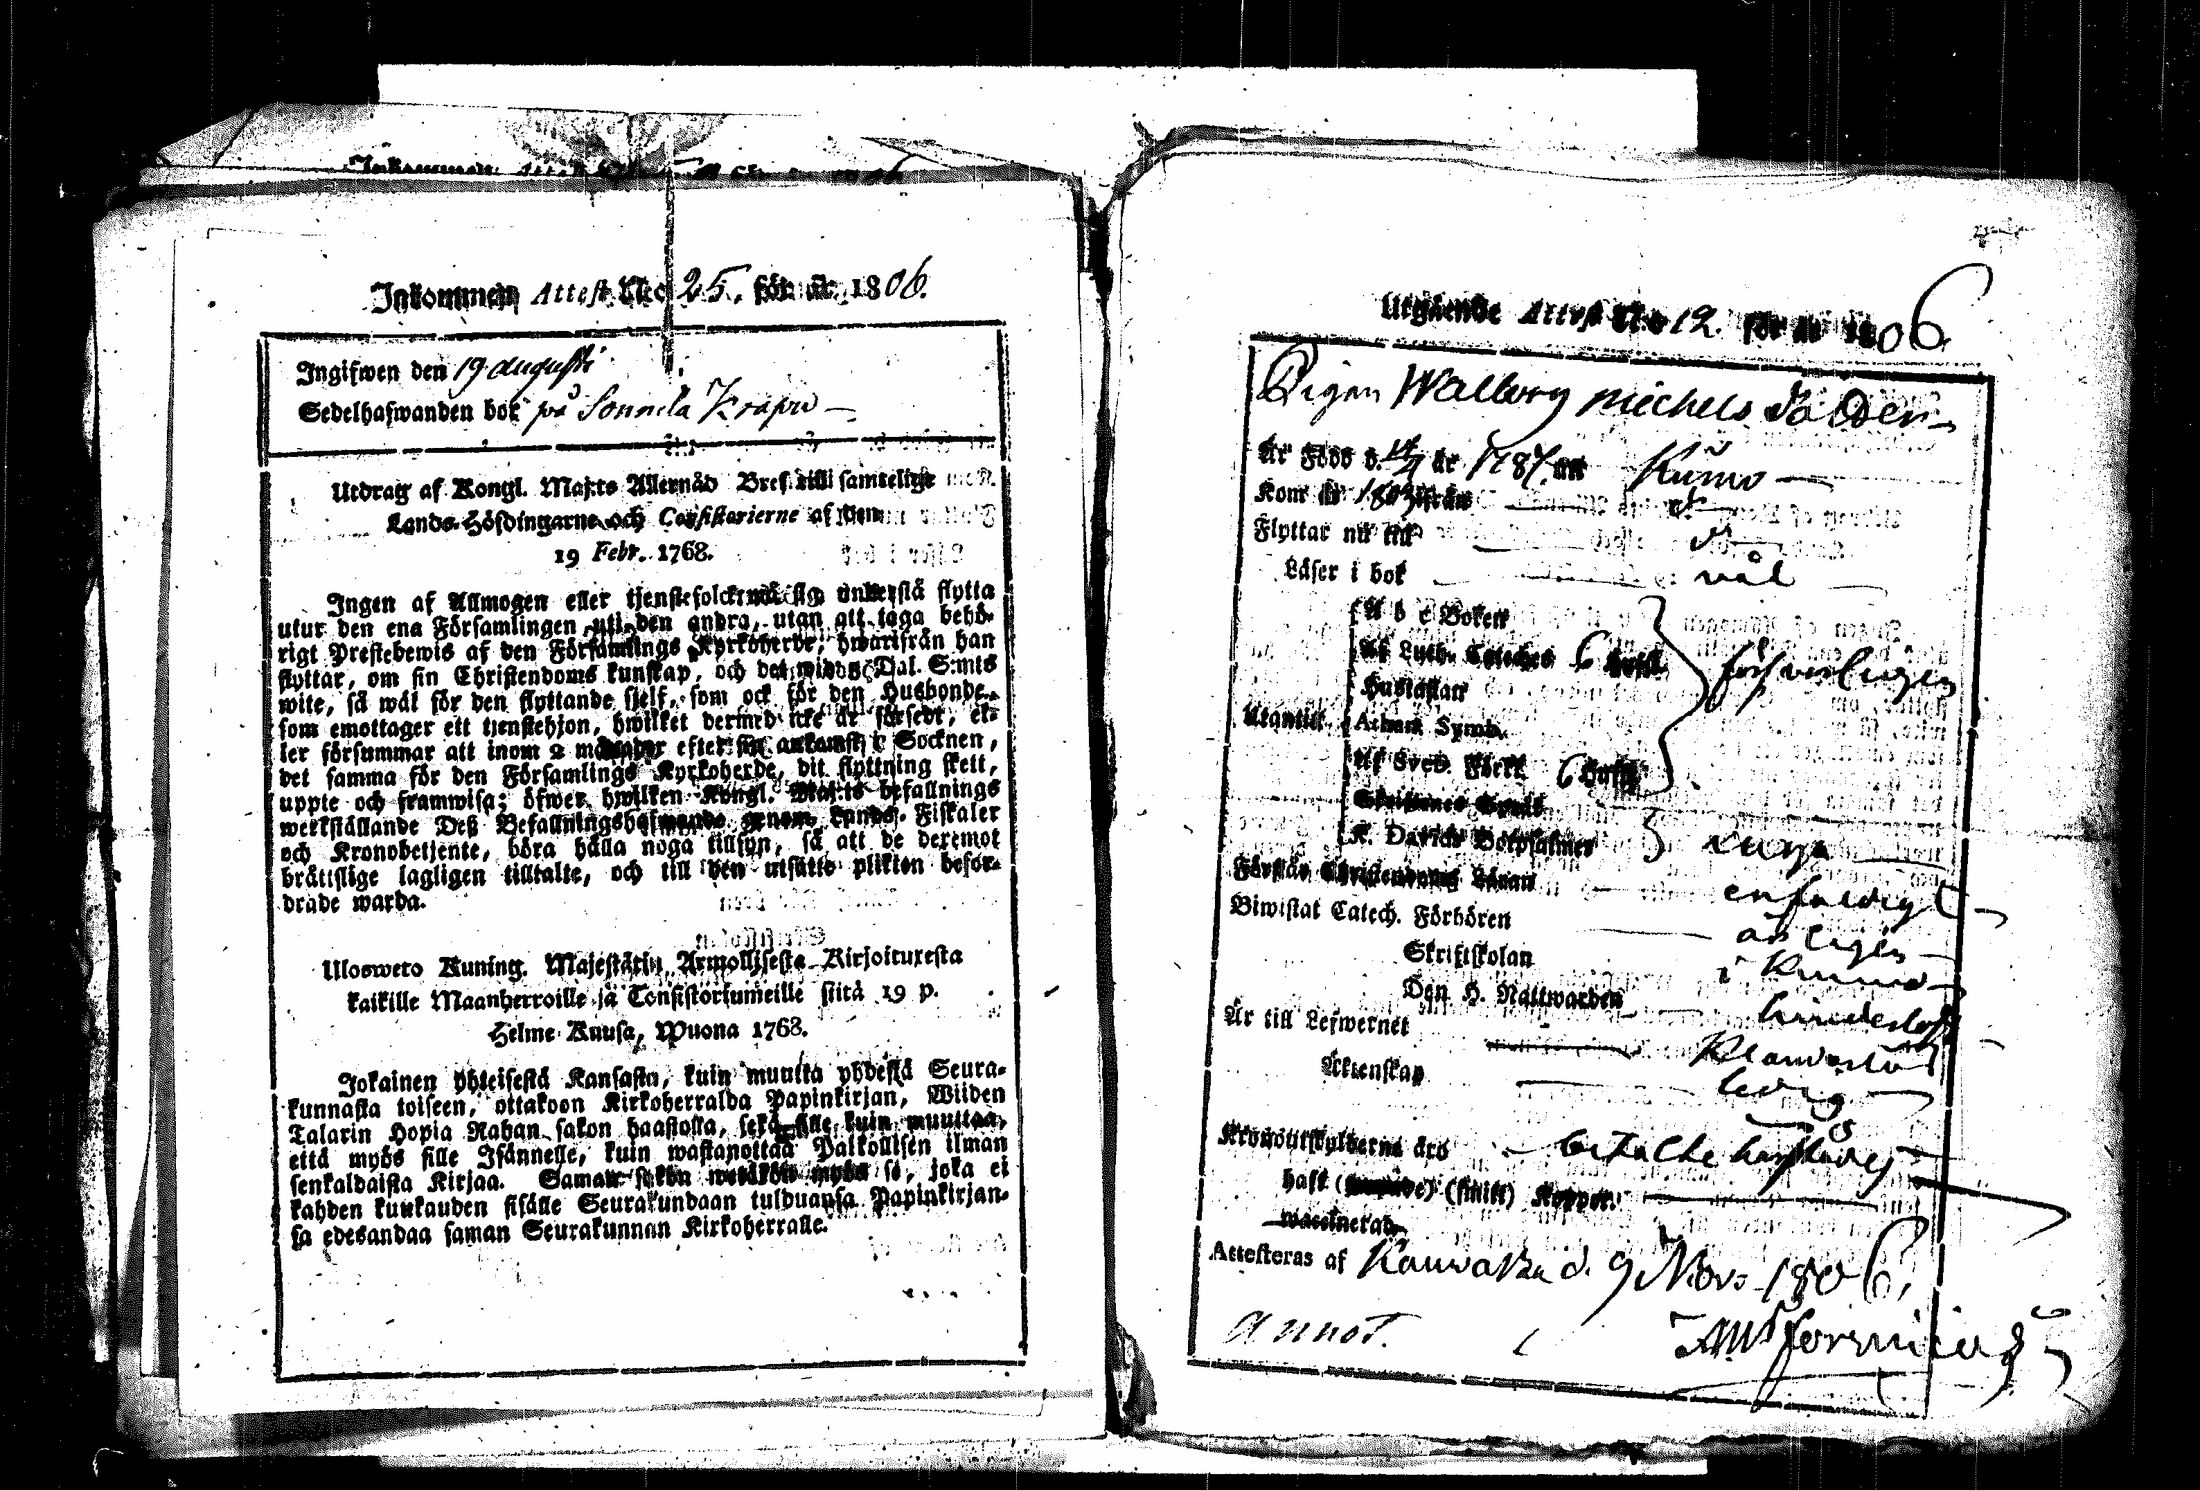 Inkommen Attest No 25. för år 1806.
Ingifwen den 19 Augusti
Sedelhafwanden bor på Sonnila Krapu
Utdrag af Kongl. Maj:ts Allernåd Bref till samtelige
Lands-Höfdingarne och Consistorierne af den
19 Febr. 1768.
Ingen af Allmogen eller tjenstefolck må sig understå flytta
utur den ena Församlingen uti den andra, utan att taga behö-
rigt Prestebewis af den Församlings Kyrkoherde, hwarifrån han
flyttar, om sin Christendoms kunskap, och det wid 5 Dal. S:mts
wite, så wäl för den flyttande sjelf, som ock för den Husbonde,
som emottager ett tjenstehjon, hwilket dermed icke är försedt, el-
ler försummar att inom 2 månader efter sin ankomst i Socknen,
det samma för den Församlings Kyrkoherde, dit flyttning skett,
uppte och framwisa; öfwer hwilken Kongl. Maj:ts befallnings
werkställande Deß Befallningshafwande genom Lands-Fiskaler
och Kronobetjente, böra hålla noga tillsyn, så att de deremot
bråttslige lagligen tilltalte, och till den utsatte plikten befor-
drade warda.
Ulosweto Kuning. Majestätin Armollisesta Kirjoituxesta
kaikille Maanherroille ja Consistoriumeille siitä 19 p.
Helme Kuusa, Wuona 1768.
Jokainen yhteisestä Kansasta, kuin muutta yhdestä Seura-
kunnasta toiseen, ottakoon Kirkoherralda Papinkirjan, Wiiden
Talarin Hopia Rahan sakon haastolla, sekä sille kuin muuttaa,
että myös sille Isännelle, kuin wastanottaa Palkollisen ilman
senkaldaista Kirjaa. Saman sakon wetäkön myös se, joka ei
kahden kuukauden sisälle Seurakundaan tulduansa Papinkirjan-
sa edesandaa saman Seurakunnan Kirkoherralle.
Utgående Attest No 12. för år 1806.
Pigan Walborg Michels Dotter
Är Född d. år 1787. uti Kumo
Kom år ifrån d:o
Flyttar nu till d:o
Läser i bok wäl
A b c Boken
Af Luth. Cateches 6 Hufst.
Hustaflan försvarligen
Utantill Athan. Symb.
Af Sved. Förkl. 6 Hufst.
Skriftenes Språk
K. Davids Botpsalmer
Förstår Christendoms Läran enfaldigt
Biwistat Catech. Förhören årligen
Skriftskolan i Kumo
Den H. Nattwarden
Är till Lefwernet
Äktenskap ledig
Kronoutskylderna äro betalte
haft (smitt) Koppor.
waccinerad
Attesteras af Kauwatza d. 9 Nov. 1806,
Annot.